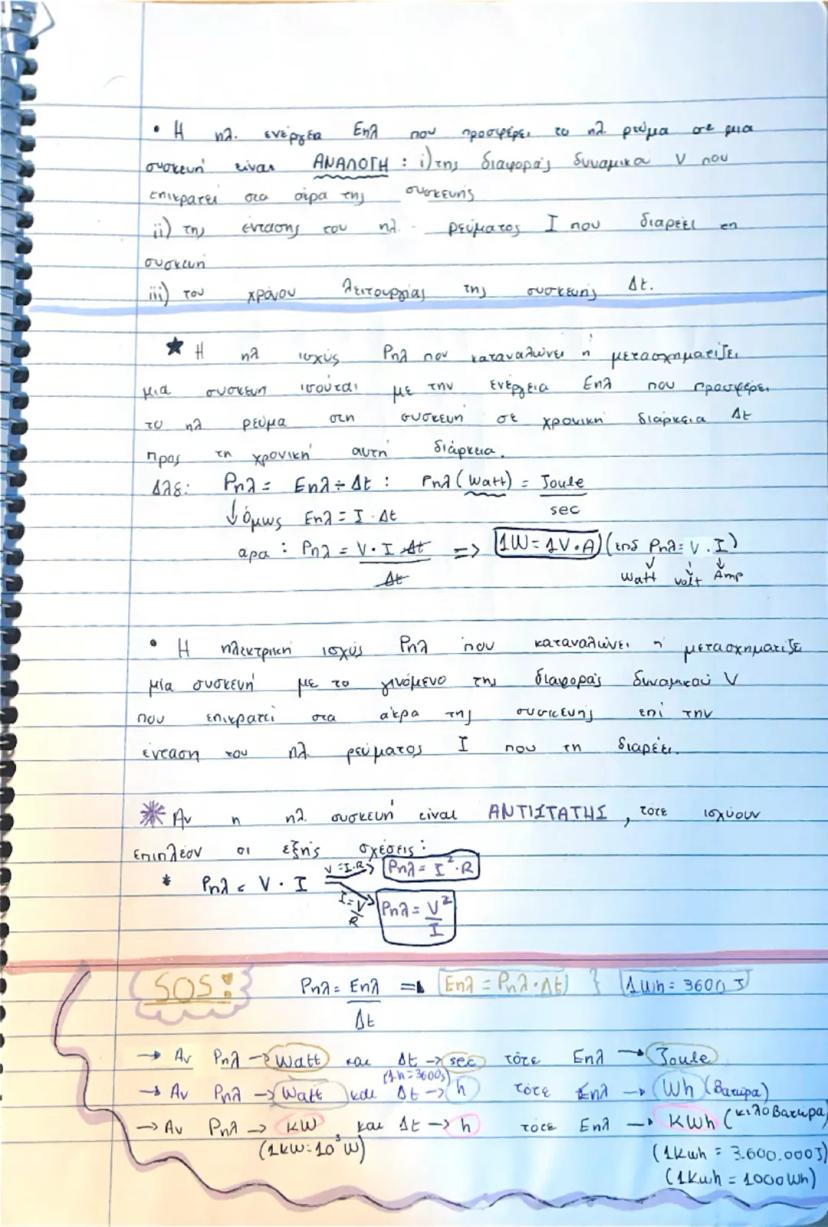 • Η ηλ. ενέργεια Εηλ που προσφέρει το ηλ ρεύμα σε μια
συσκευή είναι ΑΝΑΛΟΓΗ : i) της διαφοράς δυναμικού V που
επικρατεί στα άκρα της συσκευής
ii) της έντασης του ηλ. ρεύματος I που διαρέει τη
συσκευή
iii) του χρόνου λειτουργίας της συσκευής Δt.
★ Η ηλ ισχύς Pηλ που καταναλώνει ή μετασχηματίζει
μια συσκευή ισούται με την ενέργεια Εηλ που προσφέρει
το ηλ ρεύμα στη συσκευή σε χρονική διάρκεια Δt
προς τη χρονική αυτή διάρκεια.
Δλδ: Pηλ = Εηλ ÷ Δt : Pηλ (Watt) = Joule / sec
↓ όμως Εηλ = I · Δt
αρα : Pηλ = V · I Δt / Δt => 1W = 1V · A (επδ Pηλ = V . I)
Watt Volt Amp
• Η ηλεκτρική ισχύς Pηλ που καταναλώνει ή μετασχηματίζε
μία συσκευή με το γινόμενο της διαφοράς δυναμικού V
που επικρατεί στα άκρα της συσκευής επί την
ένταση του ηλ ρεύματος I που τη διαρέει.
Αν η ηλ συσκευή είναι ΑΝΤΙΣΤΑΤΗΣ, τοτε ισχύουν
επιπλέον οι εξής σχέσεις:
* Pηλ = V · I V=I·R Pηλ = I² · R
I = V/R Pηλ = V² / I
SOS! Pηλ = Εηλ / Δt => Εηλ = Pηλ · Δt } 1Wh = 3600 J
→ Αν Pηλ → Watt και Δt → sec τότε Εηλ → Joule
(1h = 3600s)
→ Αν Pηλ → Watt και Δt → h τότε Εηλ → Wh (βατώρα)
→ Αν Pηλ → KW και Δt → h τοτε Εηλ → KWh (κιλοβατώρα)
(1KW = 10³ W) (1Kwh = 3.600.000J)
(1Kwh = 1000Wh)